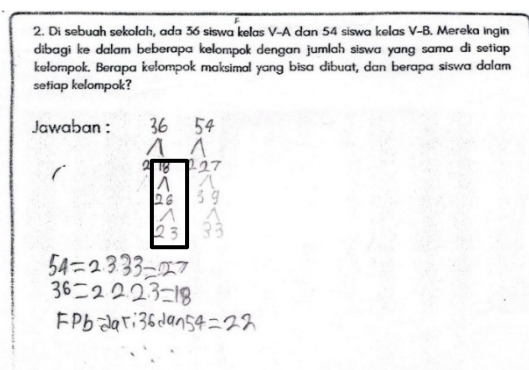 2. Di sebuah sekolah, ada 36 siswa kelas V-A dan 54 siswa kelas V-B. Mereka ingin
dibagi ke dalam beberapa kelompok dengan jumlah siswa yang sama di setiap
kelompok. Berapa kelompok maksimal yang bisa dibuat, dan berapa siswa dalam
setiap kelompok?
Jawaban : 36 54
2 18 2 27
2 6 3 9
2 3 3 3
54=2.3.33=27
36=2.2.2.3=18
FPb dari 36 dan 54=22